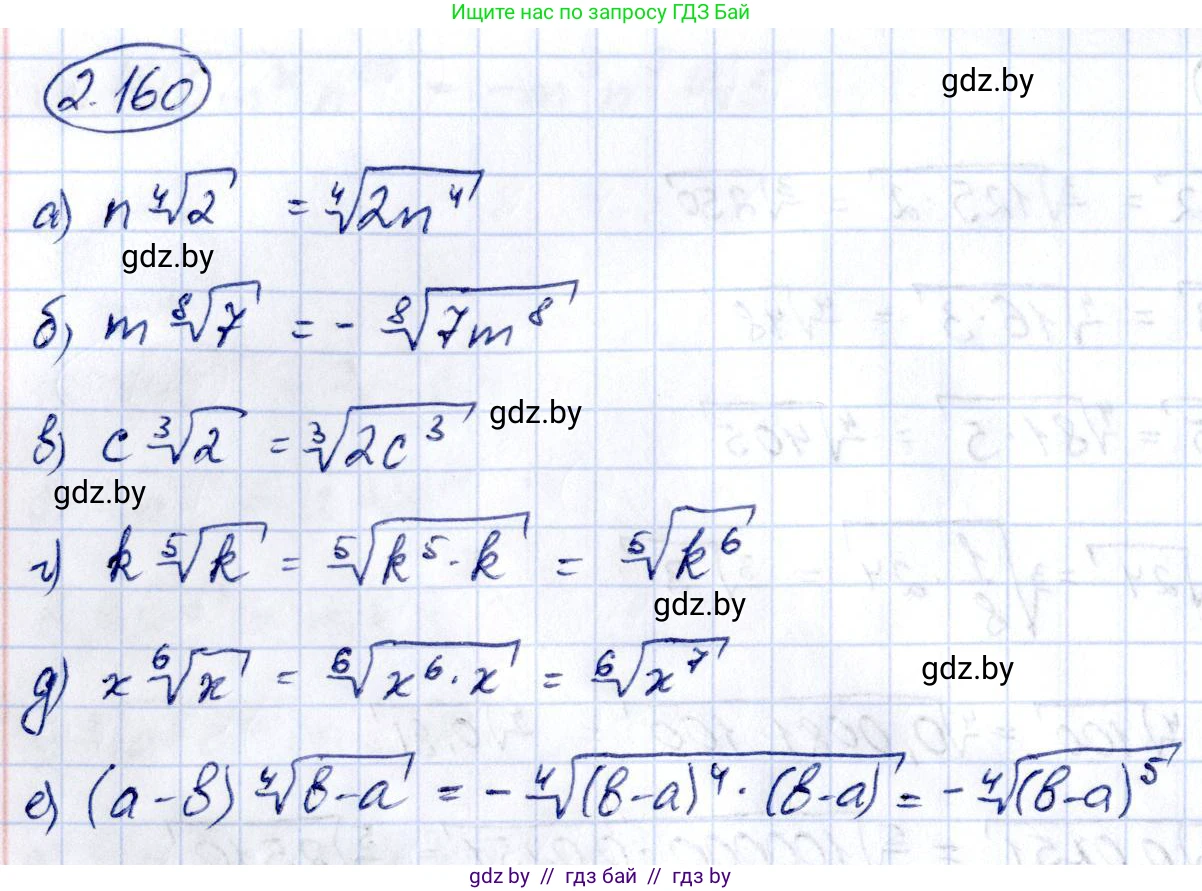 Ищите нас по запросу ГДЗ Бай
2.160
gdz.by
а) n ⁴√2 = ⁴√(2n⁴)
gdz.by
б) m ⁸√7 = - ⁸√(7m⁸)
в) c ³√2 = ³√(2c³)
gdz.by
gdz.by
г) k ⁵√k = ⁵√(k⁵·k) = ⁵√(k⁶)
gdz.by
д) x ⁶√x = ⁶√(x⁶·x) = ⁶√(x⁷)
gdz.by
е) (a-в) ⁴√(в-a) = - ⁴√((в-a)⁴·(в-a)) = - ⁴√((в-a)⁵)
gdz by // гдз бай // гдз by